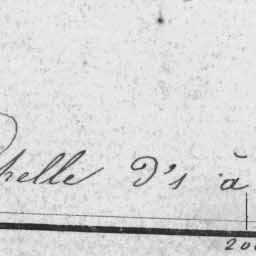 chelle D's à
200